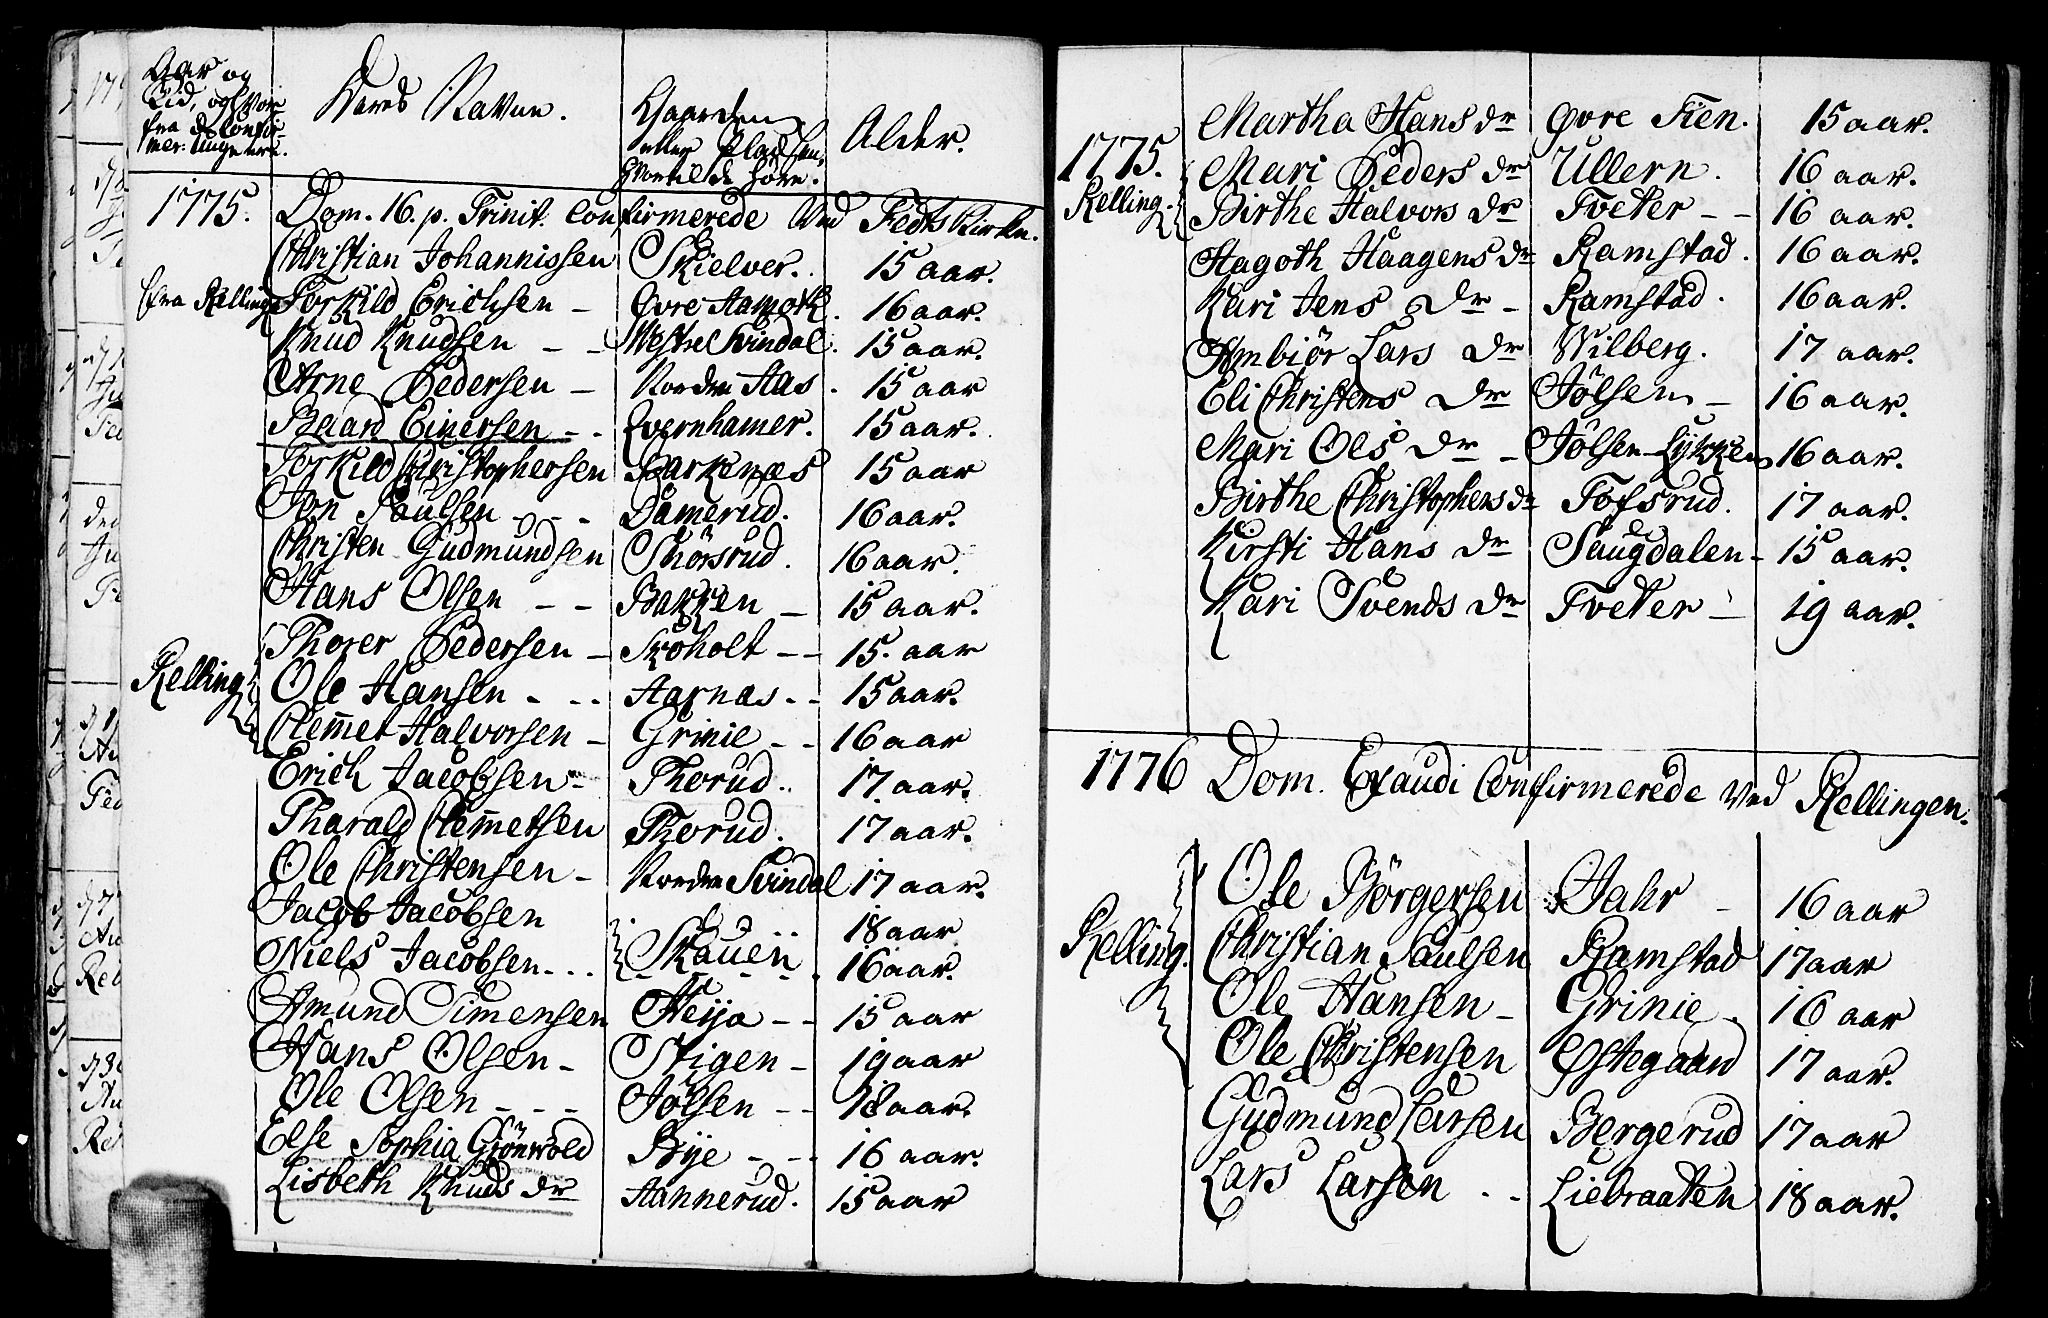 Aar og
Tid, og hvor
fra de Confir-
mer: Unge ere.
Deres Navne.
Gaarden
eller Pladsen,
hvortil de høre.
Alder.
1775. Dom. 16. p. Trinit. Confirmerede ved Fedts Kirke.
Christian Johannissen Skielver. 15 aar.
fra Relling Torkild Erichsen - Øvre Aamoth. 16 aar.
Knud Knudsen - - Westre Svindal. 15 aar.
Arne Pedersen - Nordre Aas. 15 aar
Baard Einersen - - Qvernhamer. 15 aar.
Torkild Christophersen Barkenæs 15 aar
Jon Paulsen - - - Damerud. 16 aar.
Christen Gudmundsen Skørsrud. 16 aar.
Hans Olsen - - Bakken - 15 aar.
Thorer Pedersen - Skoholt - - 15. aar
Relling Ole Hansen - - - Aarnæs - - 15 aar.
Clem̄et Halvorsen - Grinie - - 16 aar
Erich Jacobsen - Thorud. 17. aar.
Tharald Clem̄etsen Thorud. 17 aar.
Ole Christensen - Nordre Svindal 17 aar.
Jacob Jacobsen 18 aar
Niels Jacobsen - - - Skauen 16 aar.
Amund Simensen Heija - - 15 aar
Hans Olsen - Stigen - 19 aar
Ole Olsen - - - Jølsen - - 18 aar.
Else Sophia Grønvold Bye - - - 16 aar.
Lisbeth Knuds dr Aannerud. 15 aar
Martha Hans dr Øvre Fien. 15 aar.
1775. Mari Peders dr Ullern. 16 aar.
Relling. Birthe Halvors dr Tveter - - 16 aar.
Hagoth Haagens dr Ramstad. 16 aar.
Kari Jens dr - Ramstad. 16 aar.
Ambiør Lars dr Wilberg. 17 aar.
Eli Christens dr Jølsen - 16 aar.
Mari Ols dr - Jølsen-Lykken 16 aar.
Birthe Christophers dr Tofsrud. 17 aar.
Kirsti Hans dr Saugdalen - 15 aar.
Kari Svends dr Tveter - 19 aar.
1776 Dom. Exaudi Confirmerede ved Rellingen.
Ole Børgersen Jahr - 16 aar
Relling. Christian Paulsen Ramstad 17 aar
Ole Hansen - Grinie - 16 aar
Ole Christensen Østegaard 17 aar.
Gudmund Larsen Bergerud 17 aar
Lars Larsen - - Liebraaten 18 aar.